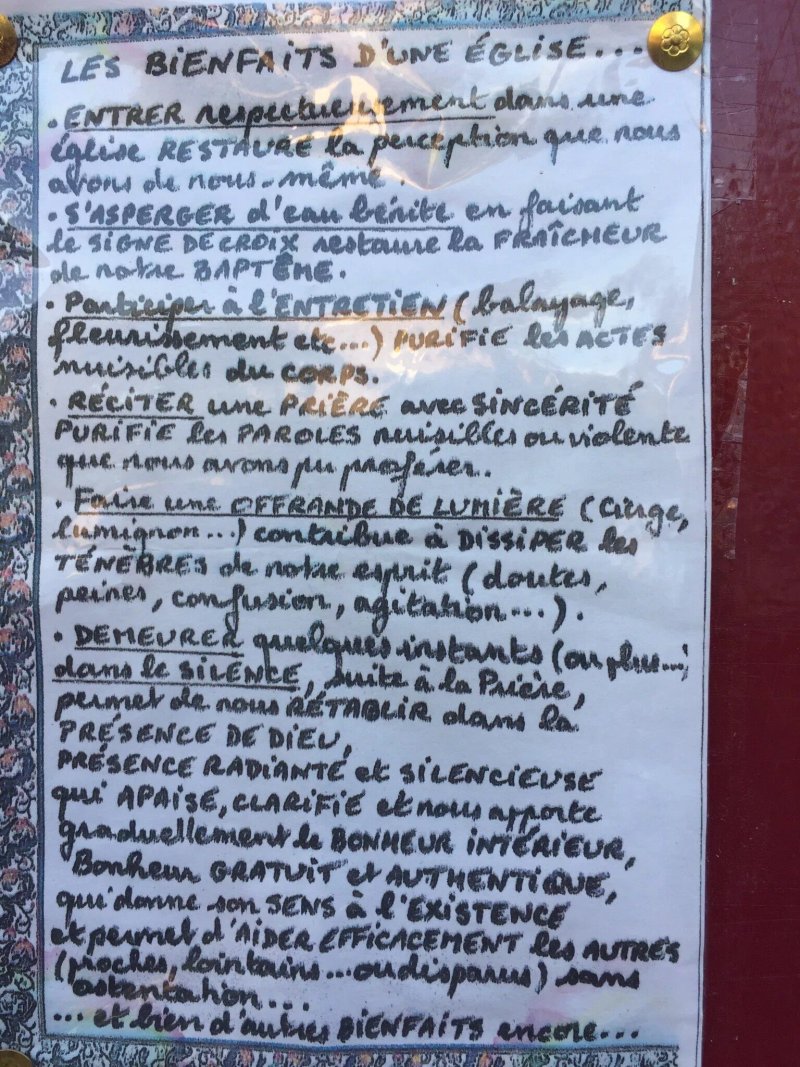 LES BIENFAITS D'UNE ÉGLISE...
• ENTRER respectueusement dans une
église RESTAURE la perception que nous
avons de nous-même.
• S'ASPERGER d'eau bénite en faisant
le SIGNE DE CROIX restaure la FRAÎCHEUR
de notre BAPTÊME.
• Participer à l'ENTRETIEN (balayage,
fleurissement etc...) PURIFIE les ACTES
nuisibles du CORPS.
• RÉCITER une PRIÈRE avec SINCÉRITÉ
PURIFIE les PAROLES nuisibles ou violente
que nous avons pu proférer.
• Faire une OFFRANDE DE LUMIÈRE (Cierge,
lumignon...) contribue à DISSIPER les
TÉNÈBRES de notre esprit (doutes,
peines, confusion, agitation...).
• DEMEURER quelques instants (ou plus...)
dans le SILENCE, suite à la Prière,
permet de nous RÉTABLIR dans la
PRÉSENCE DE DIEU,
PRÉSENCE RADIANTE et SILENCIEUSE
qui APAISE, CLARIFIE et nous apporte
graduellement le BONHEUR INTÉRIEUR,
Bonheur GRATUIT et AUTHENTIQUE,
qui donne son SENS à l'EXISTENCE
et permet d'AIDER EFFICACEMENT les AUTRES
(proches, lointains... ou disparus) sans
ostentation...
... et bien d'autres BIENFAITS encore...